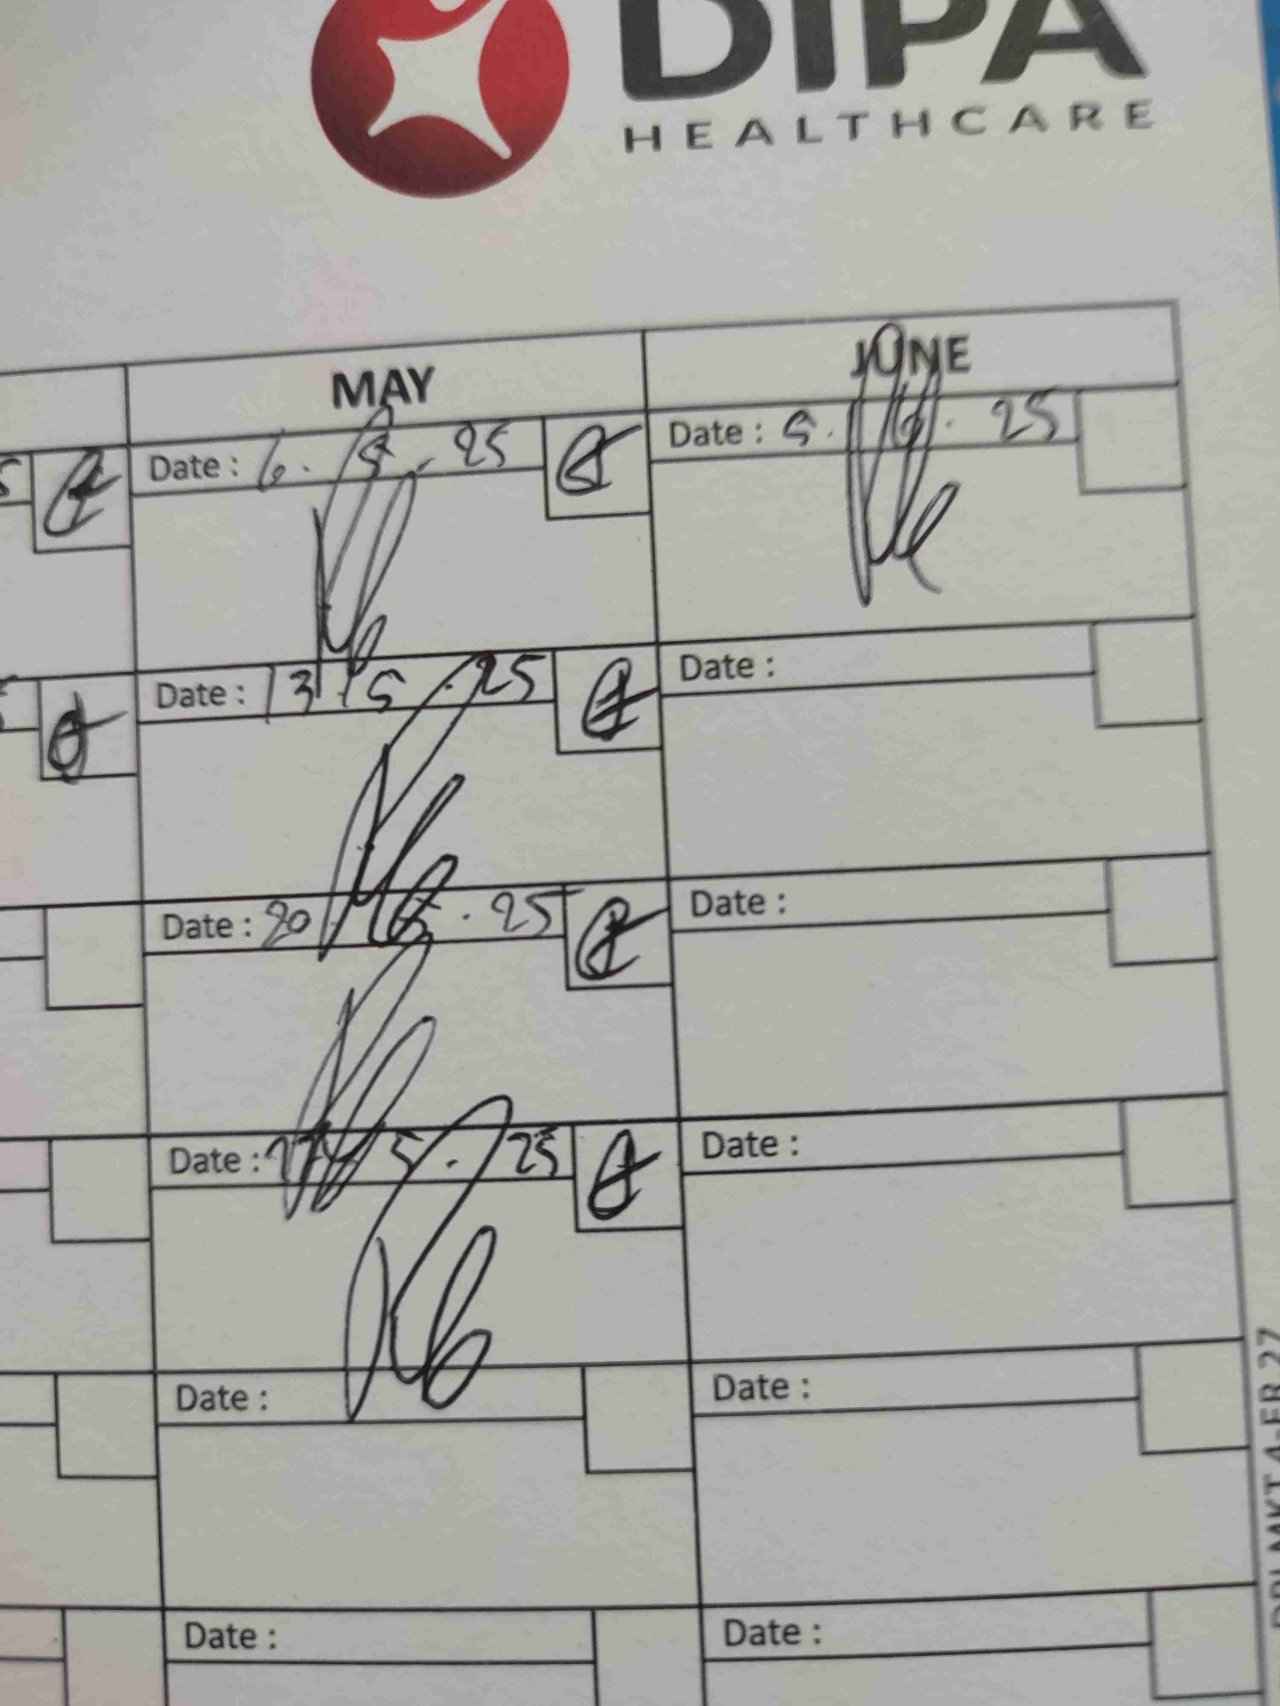 DIPA
HEALTHCARE
MAY
JUNE
Date : 6. 5. 25
Date : 5. 6. 25
Date : 13. 5. 25
Date :
Date : 20. 5. 25
Date :
Date : 27. 5. 25
Date :
Date :
Date :
Date :
Date :